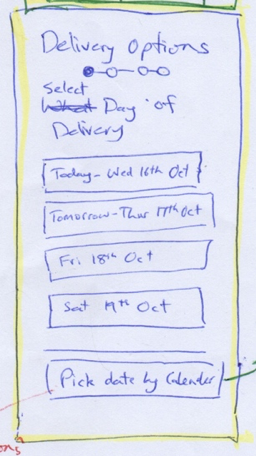 Delivery Options
Select
Day of
Delivery
Today - Wed 16th Oct
Tomorrow - Thur 17th Oct
Fri 18th Oct
Sat 19th Oct
Pick date by Calendar
ons